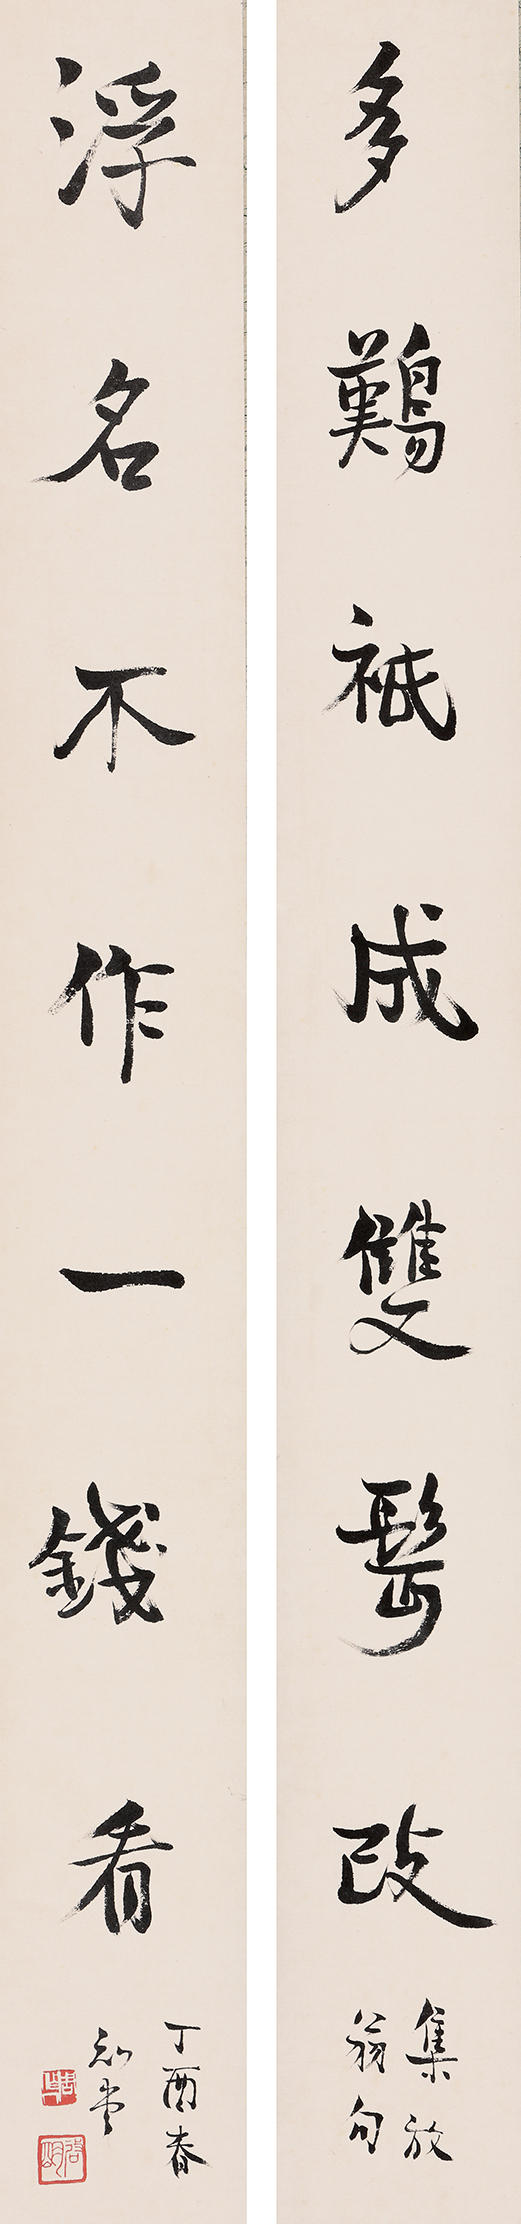 多難祇成雙鬢改
集放
翁句
浮名不作一錢看
丁酉春
知堂